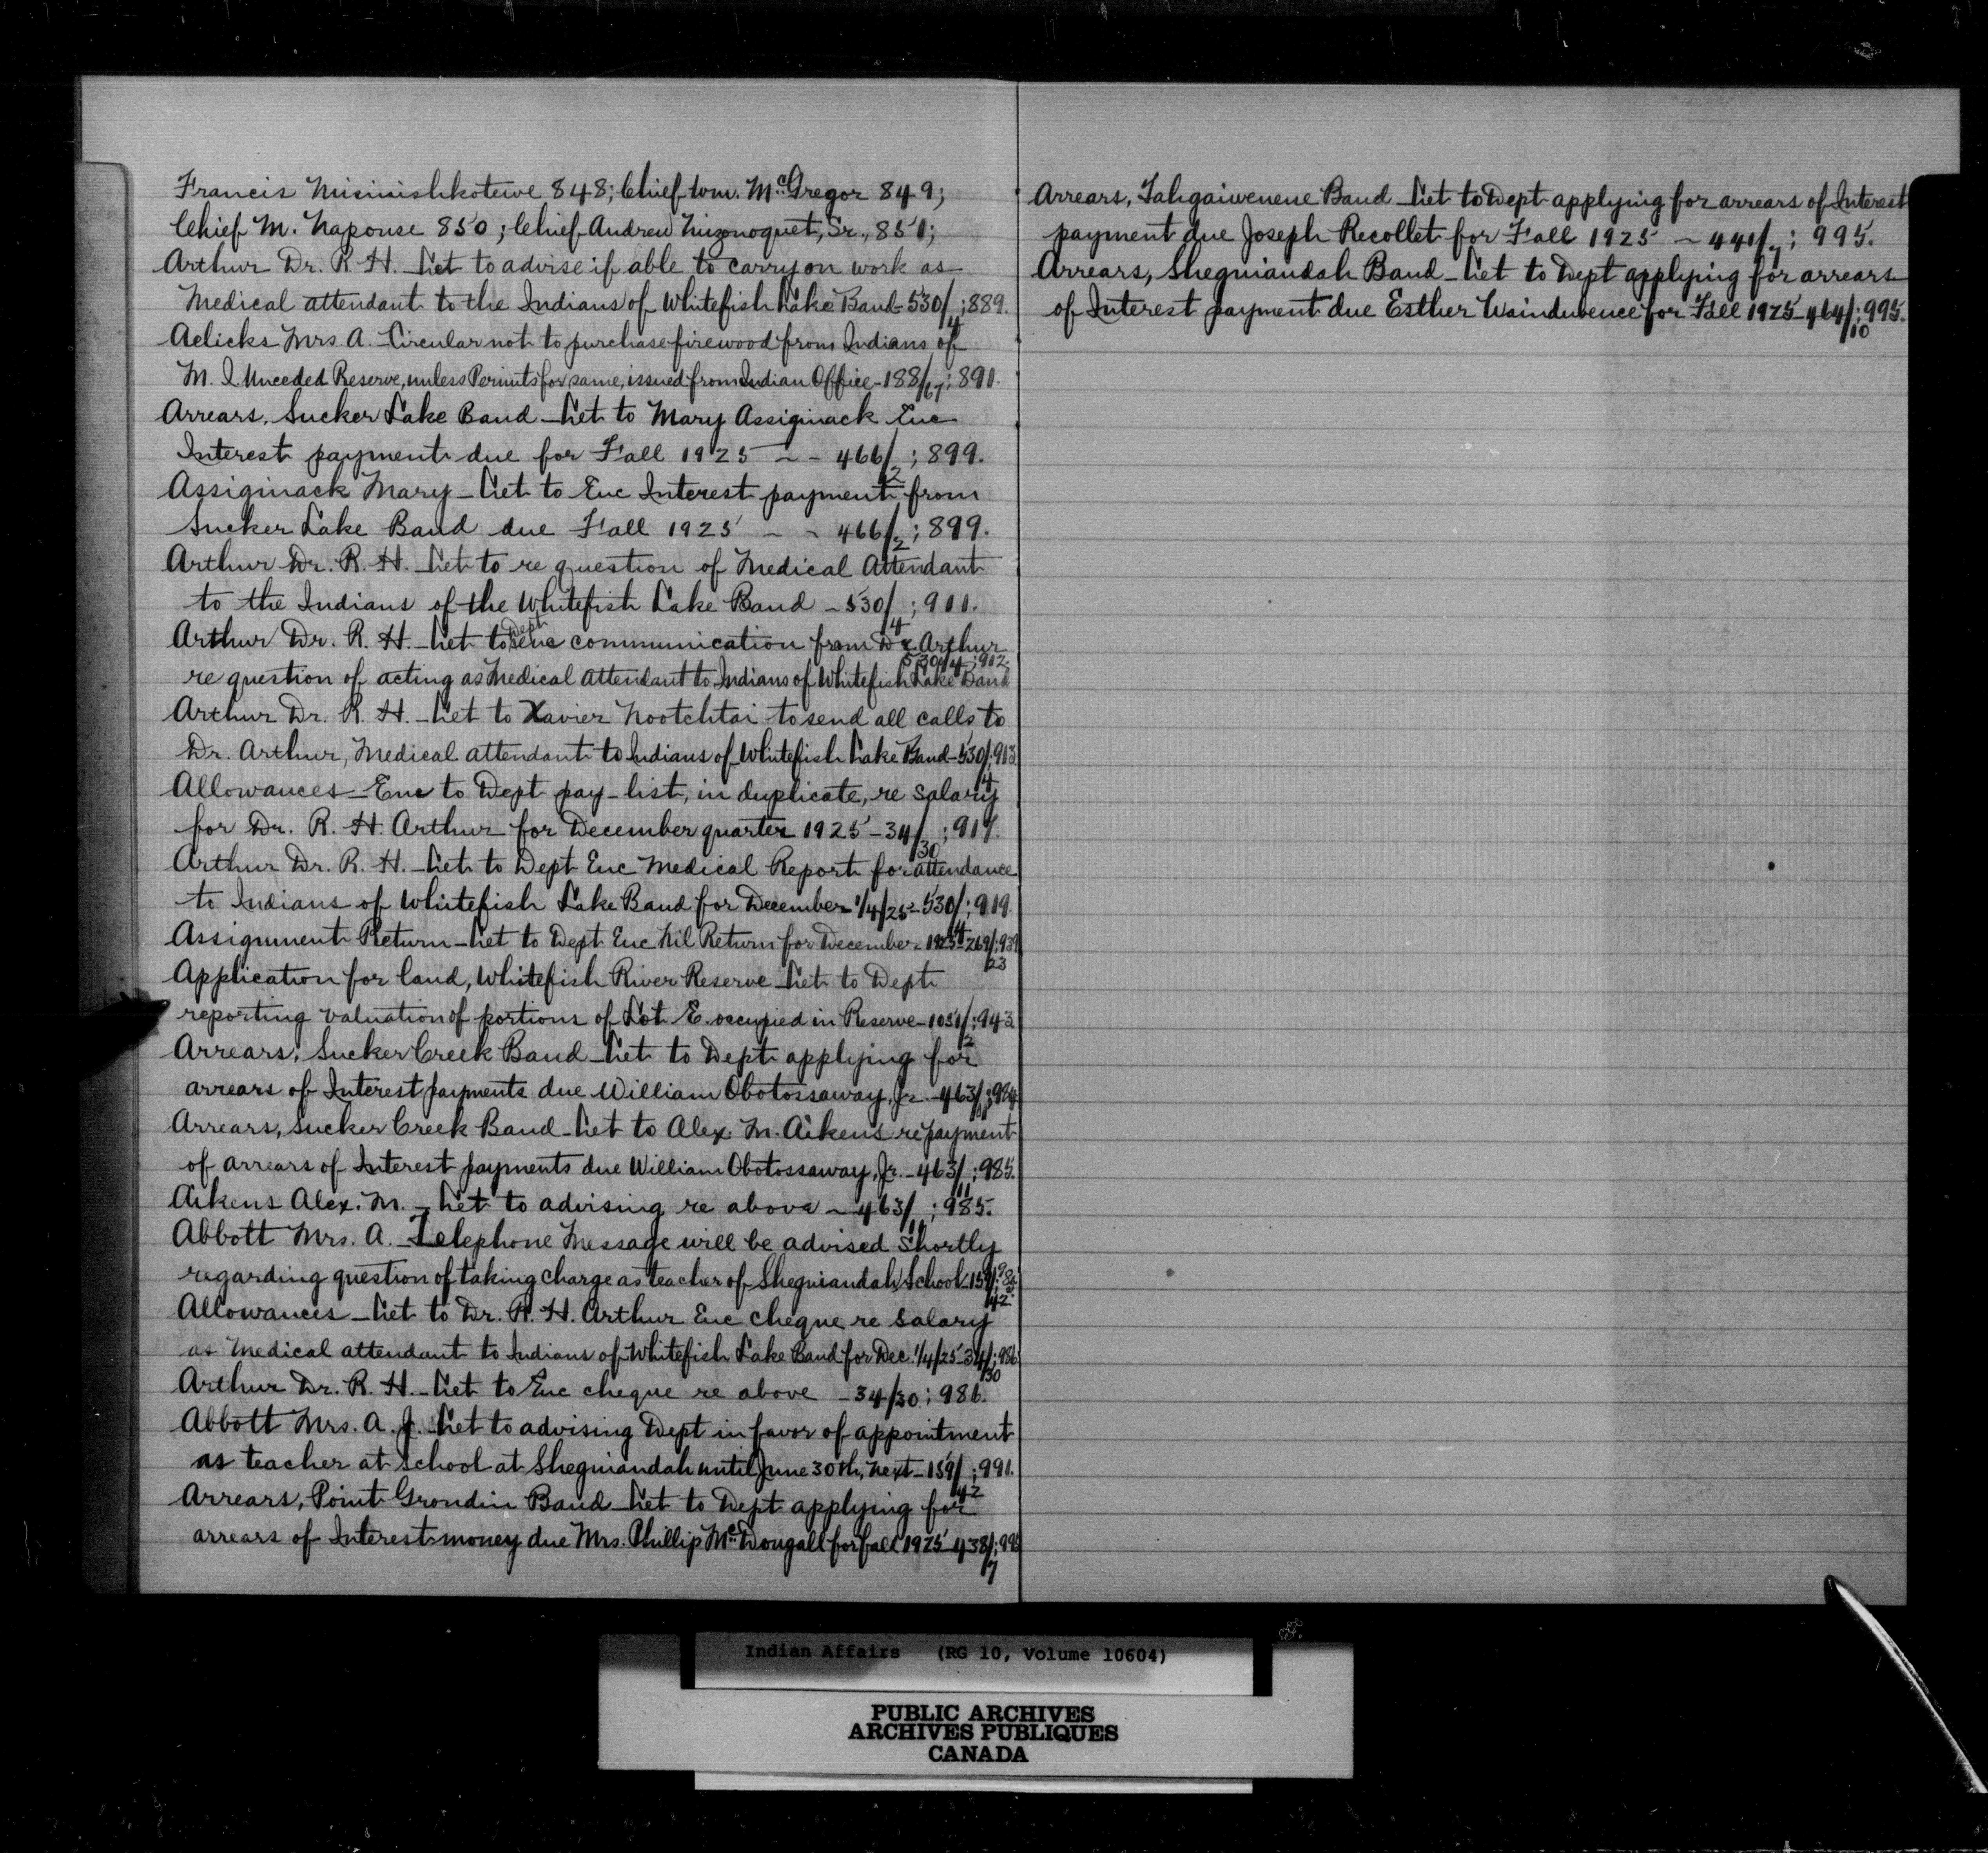 Francis Misinishkotewe 848; Chief Wm. McGregor 849;
Chief M. Naponse 850; Chief Andrew Sr., 851;
Arthur Dr. R. H. - Let to advise if able to carry on work as
Medical attendant to the Indians of Whitefish Lake Band - 530/4; 889.
Aelicks Mrs. A. - Circular not to purchase firewood from Indians of
M. I. Unceded Reserve, unless Permits for same, issued from Indian Office - 188/67; 891.
Arrears, Sucker Lake Band - Let to Mary Assiginack Enc
Interest payment due for Fall 1925 - - 466/2; 899.
Assiginack Mary - Let to Enc Interest payment from
Sucker Lake Band due Fall 1925 - - 466/2; 899.
Arthur Dr. R. H. - Let to re question of Medical Attendant
to the Indians of the Whitefish Lake Band - 530/4; 901.
Arthur Dr. R. H. - Let to Dept enc communication from Dr. Arthur
re question of acting as Medical Attendant to Indians of Whitefish Lake Band 530/4; 902.
Arthur Dr. R. H. - Let to Xavier Nootchtai to send all calls to
Dr. Arthur, Medical attendant to Indians of Whitefish Lake Band - 530/4; 913.
Allowances - Enc to Dept pay-list, in duplicate, re salary
for Dr. R. H. Arthur for December quarter 1925 - 34/30; 917.
Arthur Dr. R. H. - Let to Dept Enc Medical Report for attendance
to Indians of Whitefish Lake Band for December 1/4/25 - 530/4; 919.
Assignment Return - Let to Dept Enc Nil Return for December 1925 - 269/23; 939
Application for land, Whitefish River Reserve - Let to Dept
reporting valuation of portions of Lot E. occupied in Reserve - 1051/2; 943.
Arrears, Sucker Creek Band - Let to Dept applying for
arrears of Interest payments due William Obotossaway, Jr. - 463/11; 984.
Arrears, Sucker Creek Band - Let to Alex. M. Aikens re payment
of arrears of Interest payments due William Obotossaway, Jr. - 463/11; 985.
Aikens Alex. M. - Let to advising re above - 463/11; 985.
Abbott Mrs. A. - Telephone Message will be advised shortly
regarding question of taking charge as teacher of Sheguiandah School - 159/42;
Allowances - Let to Dr. R. H. Arthur Enc cheque re salary
as Medical attendant to Indians of Whitefish Lake Band for Dec. 1/4/25 - 34/30; 986.
Arthur Dr. R. H. - Let to Enc cheque re above - 34/30; 986.
Abbott Mrs. A. J. - Let to advising Dept in favor of appointment
as teacher at school at Sheguiandah until June 30th, next - 159/42; 991.
Arrears, Point Grondin Band - Let to Dept applying for
arrears of Interest money due Mrs. Phillip McDougall for fall 1925 - 438/7; 995
Arrears, Tahgaiwenene Band - Let to Dept applying for arrears of Interest
payment due Joseph Recollet for Fall 1925 - 441/7; 995.
Arrears, Sheguiandah Band - Let to Dept applying for arrears
of Interest payment due Esther Waindubence for Fall 1925 - 464/10; 995.
Indian Affairs (RG 10, Volume 10604)
PUBLIC ARCHIVES
ARCHIVES PUBLIQUES
CANADA